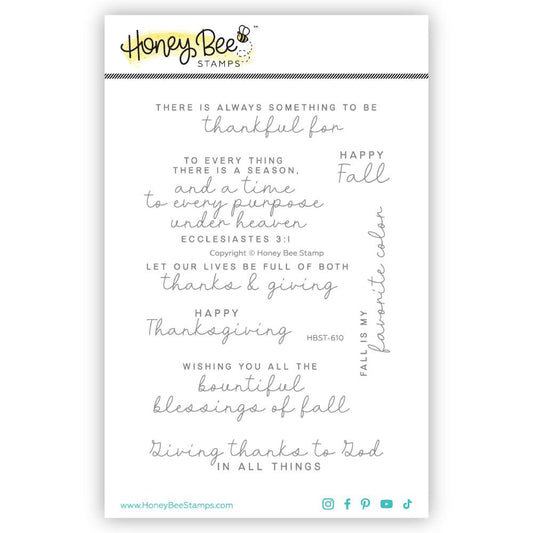 Honey Bee™
STAMPS
THERE IS ALWAYS SOMETHING TO BE
thankful for
TO EVERY THING
THERE IS A SEASON,
and a time
to every purpose
under heaven
ECCLESIASTES 3:1
HAPPY
Fall
Copyright © Honey Bee Stamp
LET OUR LIVES BE FULL OF BOTH
thanks & giving
FALL IS MY
favorite color
HAPPY
Thanksgiving
HBST-610
WISHING YOU ALL THE
bountiful
blessings of fall
Giving thanks to God
IN ALL THINGS
www.HoneyBeeStamps.com